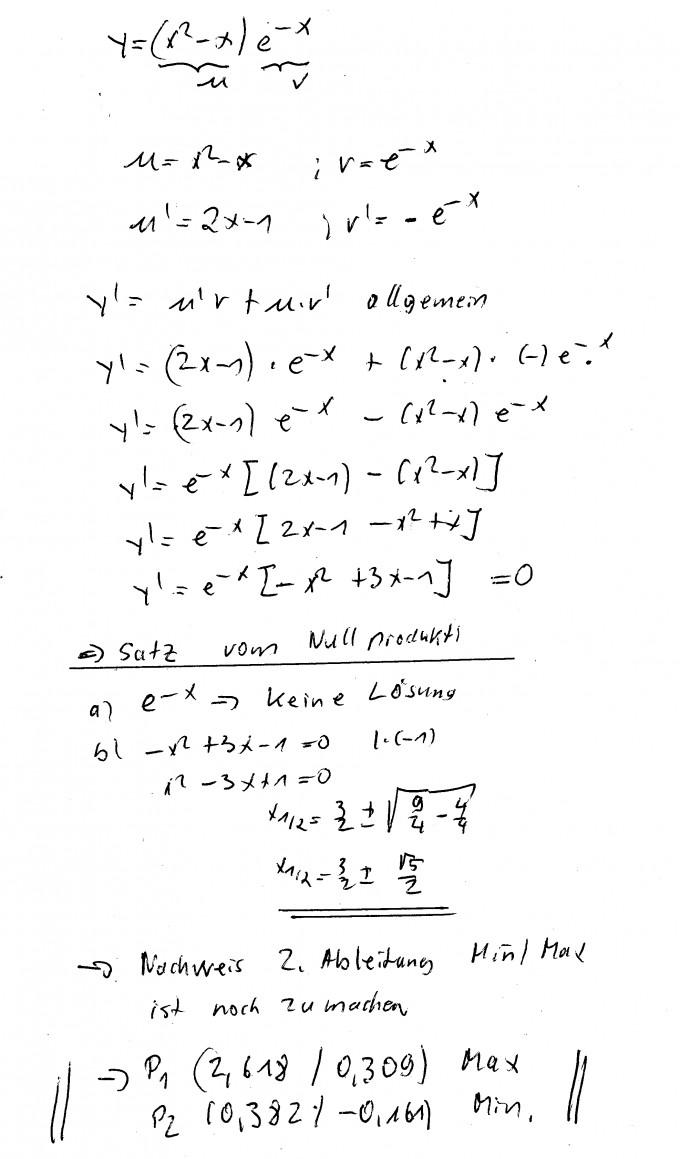 y=(x²-x) e^-x
u v
u= x²-x ; v=e^-x
u'=2x-1 ; v'= - e^-x
y'= u'v + u·v' allgemein
y'= (2x-1) · e^-x + (x²-x) · (-) e^-x
y'= (2x-1) e^-x - (x²-x) e^-x
y'= e^-x [(2x-1) - (x²-x)]
y'= e^-x [2x-1 -x² +x]
y'= e^-x [-x² +3x-1] =0
=> Satz vom Nullprodukt:
a) e^-x => keine Lösung
b) -x² +3x-1 =0 |·(-1)
x² -3x+1 =0
x1/2 = 3/2 ± √(9/4 - 4/4)
x1/2 = 3/2 ± √5/2
-> Nachweis 2. Ableitung Min/Max
ist noch zu machen
|| -> P1 (2,618 / 0,309) Max ||
P2 (0,382 / -0,161) Min.